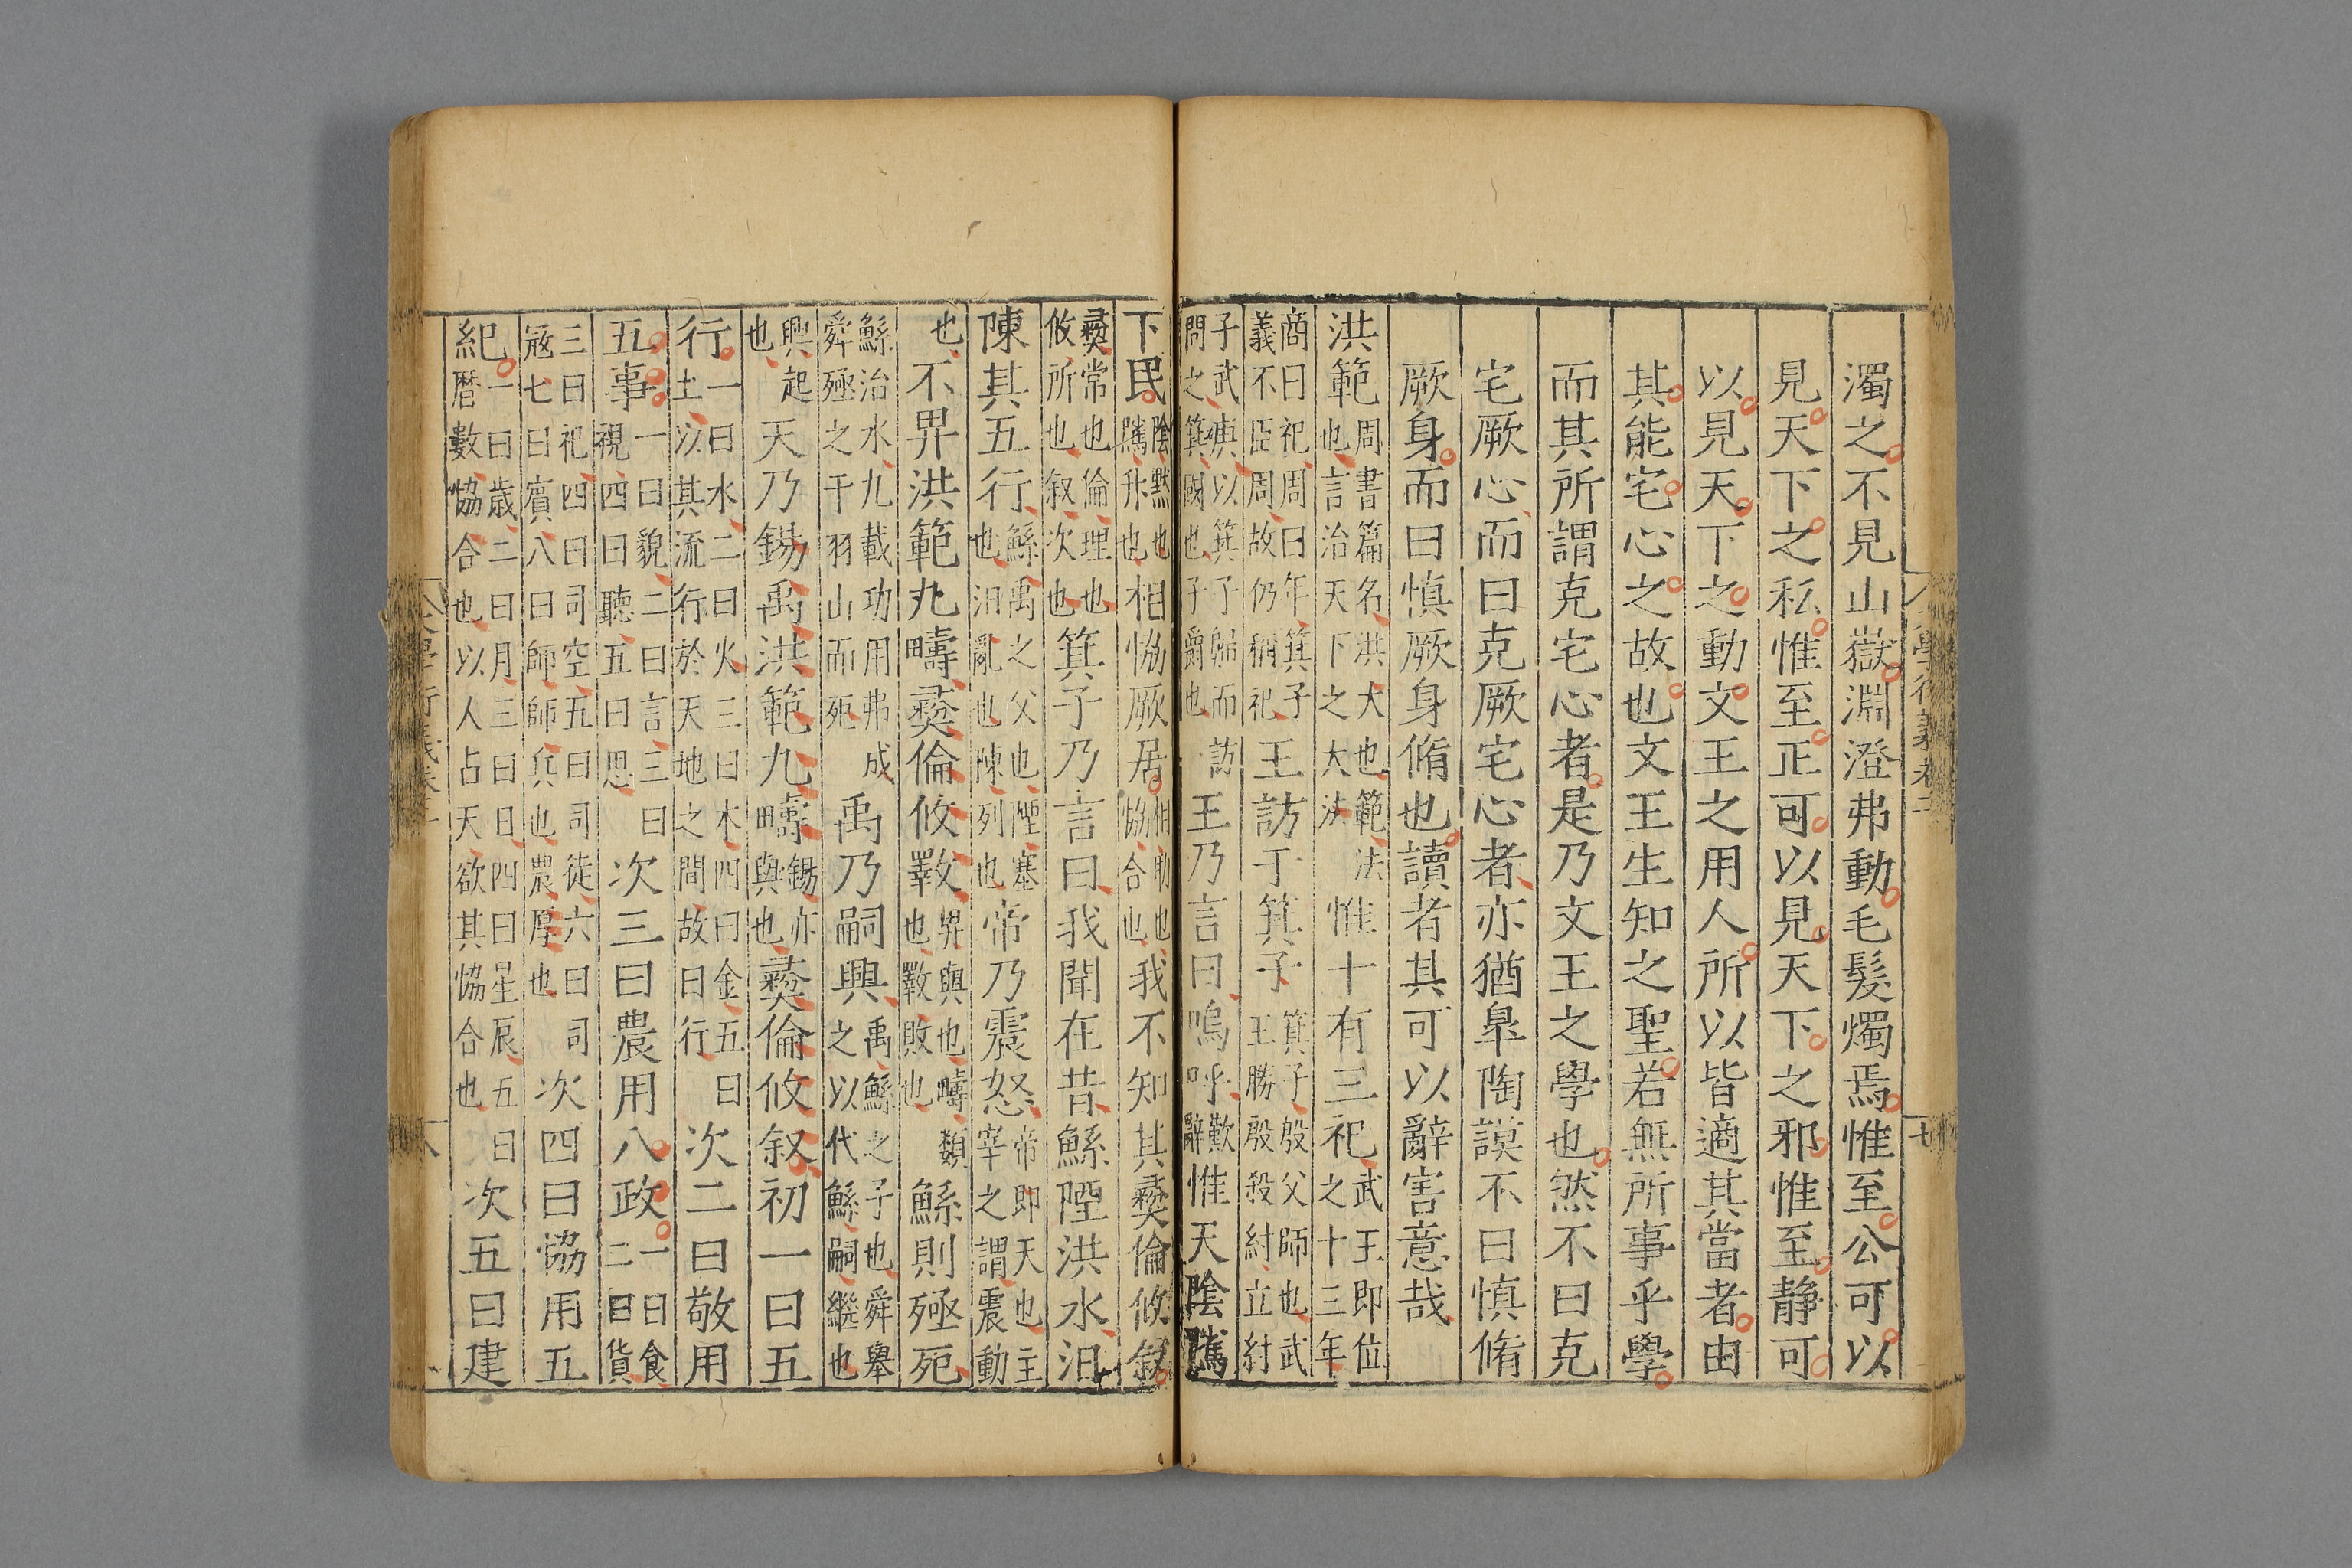 濁之不見山嶽淵澄弗動毛髮燭焉惟至公可以
見天下之私惟至正可以見天下之邪惟至静可
以見天下之動文王之用人所以皆適其當者由
其能宅心之故也文王生知之聖若無所事乎學
而其所謂克宅心者是乃文王之學也然不曰克
宅厥心而曰克厥宅心者亦猶臯陶謨不曰慎脩
厥身而曰慎厥身脩也讀者其可以辭害意哉
洪範周書篇名洪大也範法也言治天下之大法惟十有三祀武王即位之十三年
商曰祀周曰年箕子義不臣周故仍稱祀王訪于箕子箕子殷父師也武王勝殷殺紂立紂
子武庚以箕子歸而訪問之箕國也子爵也王乃言曰嗚呼歎辭惟天陰騭
下民陰黙也騭升也相恊厥居相助也恊合也我不知其彝倫攸叙
彝常也倫理也攸所也叙次也箕子乃言曰我聞在昔鯀陻洪水汨
陳其五行鯀禹之父也陻塞也汨亂也陳列也帝乃震怒帝即天也主宰之謂震動
也不畀洪範九疇彝倫攸斁畀與也疇類也斁敗也鯀則殛死
鯀治水九載功用弗成舜殛之于羽山而死禹乃嗣興禹鯀之子也舜舉之以代鯀嗣繼也
興起也天乃錫禹洪範九疇錫亦與也彝倫攸叙初一曰五
行一曰水二曰火三曰木四曰金五曰土以其流行於天地之間故曰行次二曰敬用
五事一曰貌二曰言三曰視四曰聽五曰思次三曰農用八政一曰食二曰貨
三曰祀四曰司空五曰司徒六曰司寇七曰賓八曰師師兵也農厚也次四曰恊用五
紀一曰歳二曰月三曰日四曰星辰五曰暦數恊合也以人占天欲其恊合也次五曰建